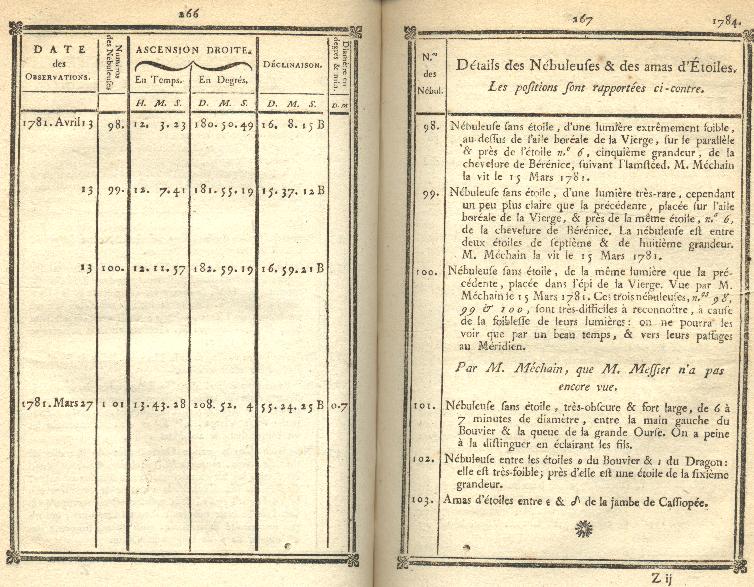 266
DATE
des
OBSERVATIONS.
Numéros
des Nébuleuses
ASCENSION DROITE.
En Temps.
En Degrés.
DÉCLINAISON.
Diamètre en
degrés & min.
H. M. S.
D. M. S.
D. M. S.
D. M
1781. Avril 13 98. 12. 3. 23 180. 50. 49 16. 8. 15 B
13 99. 12. 7. 41 181. 55. 19 15. 37. 12 B
13 100. 12. 11. 57 182. 59. 19 16. 59. 21 B
1781. Mars 27 101 13. 43. 28 208. 52. 4 55. 24. 25 B 0. 7
267
1784.
N.os
des
Nébul.
Détails des Nébuleuſes & des amas d'Étoiles.
Les poſitions ſont rapportées ci-contre.
98. Nébuleuſe ſans étoile, d'une lumière extrêmement foible,
au-deſſus de l'aile boréale de la Vierge, ſur le parallèle
& près de l'étoile n.° 6, cinquième grandeur, de la
chevelure de Bérénice, ſuivant Flamſteed. M. Méchain
la vit le 15 Mars 1781.
99. Nébuleuſe ſans étoile, d'une lumière très-rare, cependant
un peu plus claire que la précédente, placée ſur l'aile
boréale de la Vierge, & près de la même étoile, n.° 6,
de la chevelure de Bérénice. La nébuleuſe eſt entre
deux étoiles de ſeptième & de huitième grandeur.
M. Méchain la vit le 15 Mars 1781.
100. Nébuleuſe ſans étoile, de la même lumière que la pré-
cédente, placée dans l'épi de la Vierge. Vue par M.
Méchain le 15 Mars 1781. Ces trois nébuleuſes, n.os 98,
99 & 100, ſont très-difficiles à reconnoître, à cauſe
de la foibleſſe de leurs lumières: on ne pourra les
voir que par un beau temps, & vers leurs paſſages
au Méridien.
Par M. Méchain, que M. Meſſier n'a pas
encore vue.
101. Nébuleuſe ſans étoile, très-obſcure & fort large, de 6 à
7 minutes de diamètre, entre la main gauche du
Bouvier & la queue de la grande Ourſe. On a peine
à la diſtinguer en éclairant les fils.
102. Nébuleuſe entre les étoiles ο du Bouvier & ι du Dragon:
elle eſt très-foible; près d'elle eſt une étoile de la ſixième
grandeur.
103. Amas d'étoiles entre ε & δ de la jambe de Caſſiopée.
Z ij